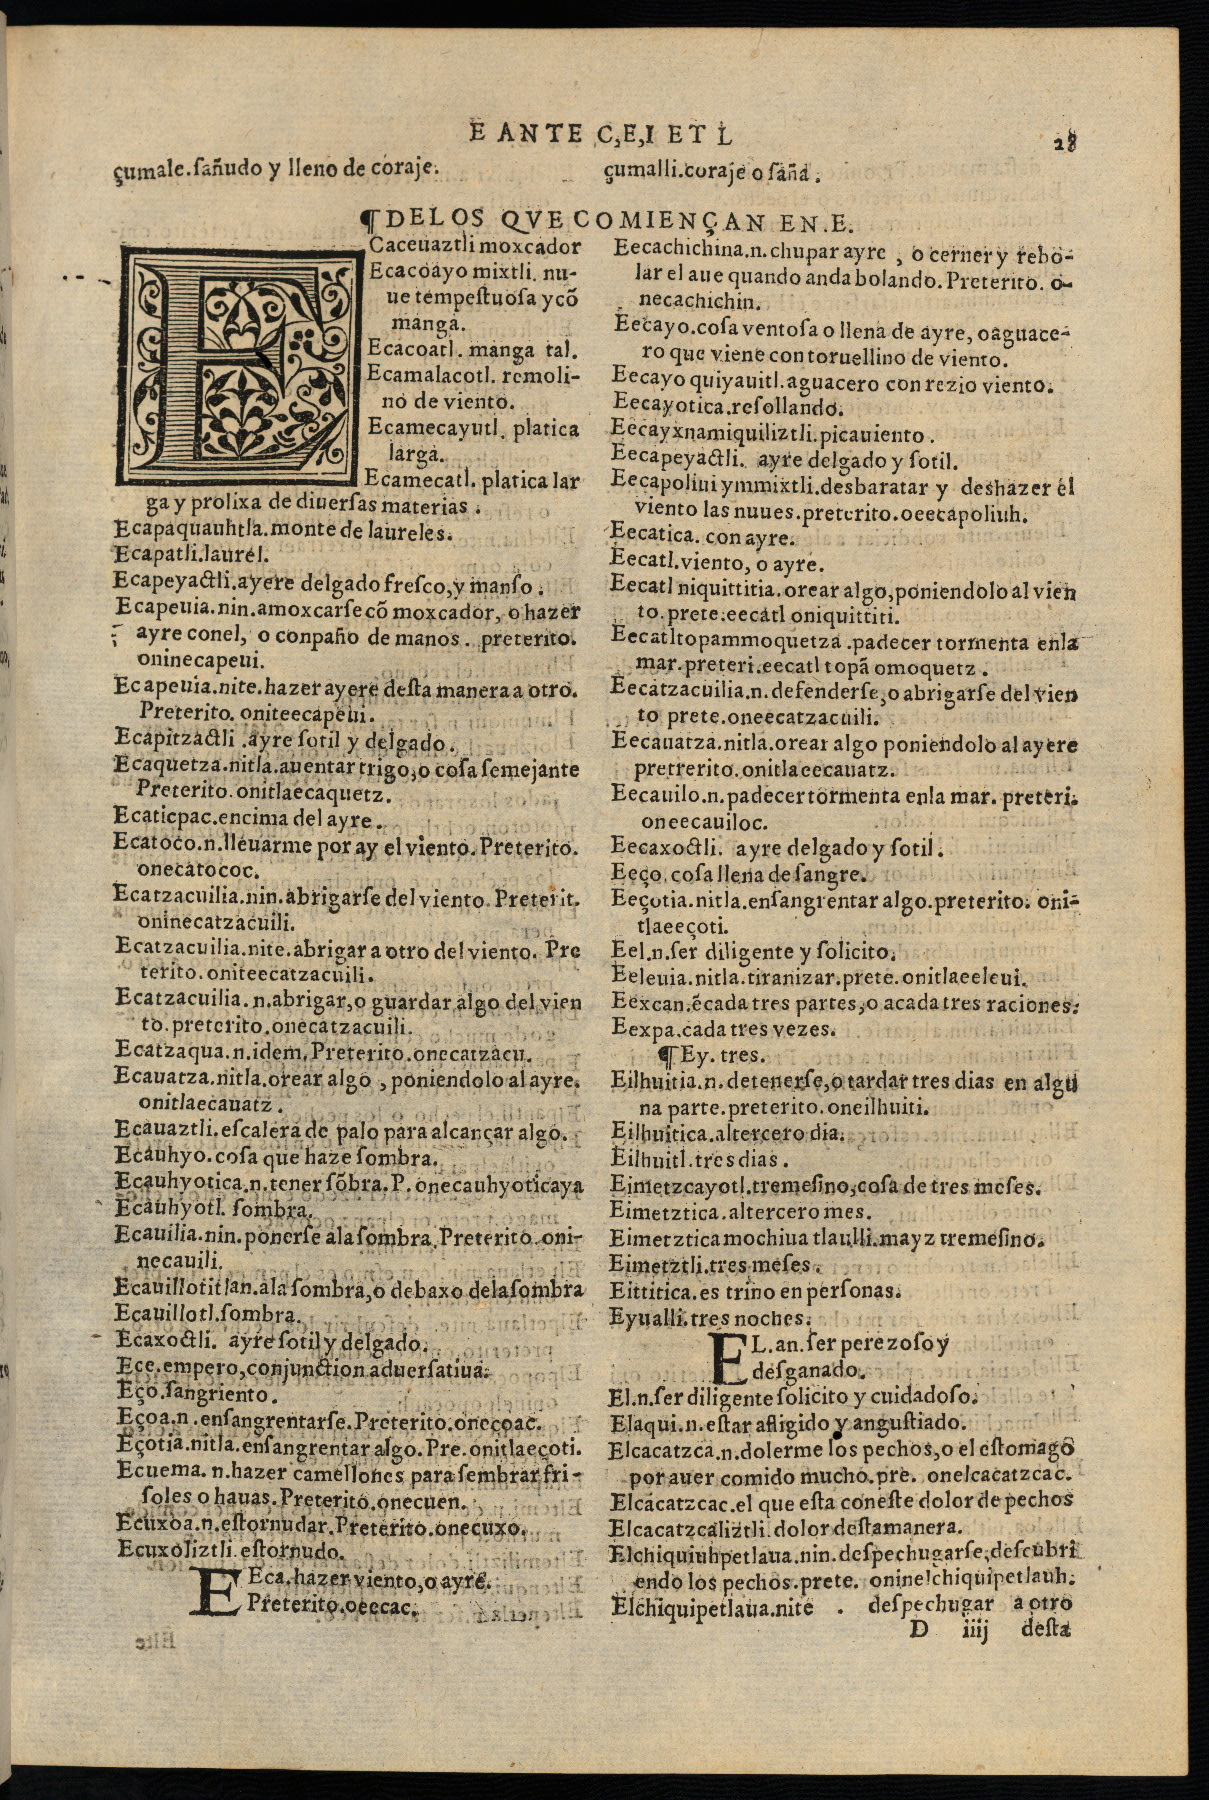 E ANTE C,E,I ET L
28
çumale.sañudo y lleno de coraje.
çumalli.coraje o saña.
¶DELOS QVE COMIENÇAN EN.E.
ECaceuaztli moxcador
Ecacoayo mixtli. nu-
ue tempestuosa y cõ
manga.
Ecacoatl. manga tal.
Ecamalacotl. remoli-
no de viento.
Ecamecayutl. platica
larga.
Ecamecatl. platica lar
ga y prolixa de diuersas materias.
Ecapaquauhtla.monte de laureles.
Ecapatli.laurel.
Ecapeyactli.ayere delgado fresco,y manso.
Ecapeuia.nin.amoxcarse cõ moxcador, o hazer
ayre conel, o con paño de manos. preterito.
oninecapeui.
Ecapeuia.nite.hazer ayere desta manera a otro.
Preterito. oniteecapeui.
Ecapitzactli .ayre sotil y delgado.
Ecaquetza.nitla.auentar trigo,o cosa semejante
Preterito.onitlaecaquetz.
Ecaticpac.encima del ayre.
Ecatoco.n.lleuarme por ay el viento.Preterito.
onecatococ.
Ecatzacuilia.nin.abrigarse del viento.Preterit.
oninecatzacuili.
Ecatzacuilia.nite.abrigar a otro del viento. Pre
terito.oniteecatzacuili.
Ecatzacuilia.n.abrigar,o guardar algo del vien
to.preterito.onecatzacuili.
Ecatzaqua.n.idem.Preterito.onecatzacu.
Ecauatza.nitla.orear algo , poniendolo al ayre.
onitlaecauatz.
Ecauaztli.escalera de palo para alcançar algo.
Ecauhyo.cosa que haze sombra.
Ecauhyotica.n.tener sõbra.P.onecauhyoticaya
Ecauhyotl. sombra.
Ecauilia.nin.ponerse ala sombra.Preterito.oni-
necauili.
Ecauillotitlan.ala sombra,o debaxo dela sombra
Ecauillotl.sombra.
Ecaxoctli. ayre sotil y delgado.
Ece.empero,conjunction aduersatiua.
Eço.sangriento.
Eçoa.n.ensangrentarse.Preterito.oneçoac.
Eçotia.nitla.ensangrentar algo.Pre.onitlaeçoti.
Ecuema. n.hazer camellones para sembrar fri-
soles o hauas.Preterito.onecuen.
Ecuxoa.n.estornudar.Preterito.onecuxo.
Ecuxoliztli.estornudo.
EEca.hazer viento,o ayre.
Preterito.oeecac.
Eecachichina.n.chupar ayre , o cerner y rebo-
lar el aue quando anda bolando.Preterito. o-
necachichin.
Eecayo.cosa ventosa o llena de ayre, o aguace-
ro que viene con toruellino de viento.
Eecayo quiyauitl.aguacero con rezio viento.
Eecayotica.resollando.
Eecayxnamiquiliztli.picauiento.
Eecapeyactli. ayre delgado y sotil.
Eecapoliui ymmixtli.desbaratar y deshazer el
viento las nuues.preterito.oeecapoliuh.
Eecatica. con ayre.
Eecatl.viento, o ayre.
Eecatl niquittitia.orear algo,poniendolo al vien
to.prete.eecatl oniquittiti.
Eecatltopammoquetza.padecer tormenta enla
mar.preteri.eecatl topã omoquetz.
Eecatzacuilia.n.defenderse,o abrigarse del vien
to prete.oneecatzacuili.
Eecauatza.nitla.orear algo poniendolo al ayere
pretrerito.onitlaeecauatz.
Eecauilo.n.padecer tormenta enla mar. preteri.
oneecauiloc.
Eecaxoctli. ayre delgado y sotil.
Eeço.cosa llena de sangre.
Eeçotia.nitla.ensangrentar algo.preterito. oni-
tlaeeçoti.
Eel.n.ser diligente y solicito.
Eeleuia.nitla.tiranizar.prete.onitlaeeleui.
Eexcan.ẽcada tres partes,o acada tres raciones.
Eexpa.cada tres vezes.
¶Ey. tres.
Eilhuitia.n.detenerse,o tardar tres dias en algu
na parte.preterito.oneilhuiti.
Eilhuitica.altercero dia.
Eilhuitl.tres dias.
Eimetzcayotl.tremesino,cosa de tres meses.
Eimetztica.altercero mes.
Eimetztica mochiua tlaulli.mayz tremesino.
Eimetztli.tres meses.
Eittitica.es trino en personas.
Eyualli.tres noches.
EL.an.ser perezoso y
desganado.
El.n.ser diligente solicito y cuidadoso.
Elaqui.n.estar afligido y angustiado.
Elcacatzca.n.dolerme los pechos,o el estomago
por auer comido mucho.pre. onelcacatzcac.
Elcacatzcac.el que esta coneste dolor de pechos
Elcacatzcaliztli.dolor destamanera.
Elchiquiuhpetlaua.nin.despechugarse,descubri
endo los pechos.prete. oninelchiquipetlauh.
Elchiquipetlaua.nite . despechugar a otro
D iiij desta